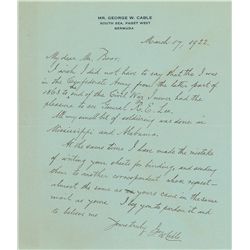 MR. GEORGE W. CABLE
SOUTH SEA, PAGET WEST
BERMUDA
March 17, 1922.
My dear Mr. Boor:
I wish I did not have to say that tho I was
in the Confederate Army from the latter part of
1863 to end of the Civil War I never had the
pleasure to see General R. E. Lee.
All my small bit of soldiering was done in
Mississippi and Alabama.
At the same time I have made the mistake
of writing your sheets for binding, and sending
them to another correspondent whose request
almost the same as yours came in the same
mail as yours I beg you to pardon it and
to believe me
Yours truly,
G W Cable